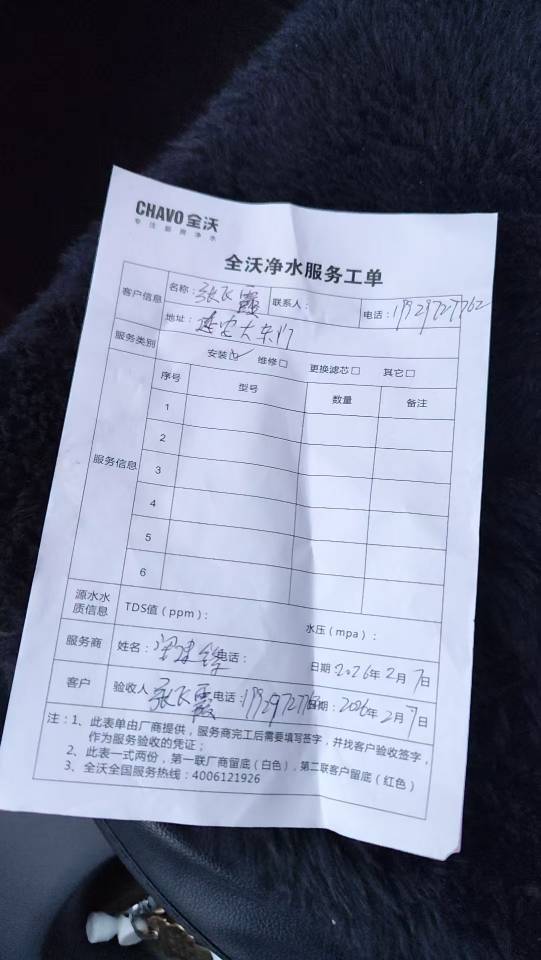 CHAVO 全沃
专注厨房净水
全沃净水服务工单
客户信息 名称：张飞霞 联系人： 电话：19729727762
地址：延安大东门
服务类别 安装☑ 维修□ 更换滤芯□ 其它□
服务信息 序号 型号 数量 备注
1
2
3
4
5
6
源水水质信息 TDS值（ppm）： 水压（mpa）：
服务商 姓名： 电话： 日期：2026年2月7日
客户 验收人 张飞霞 电话： 日期：2026年2月7日
注：1、此表单由厂商提供，服务商完工后需要填写签字，并找客户验收签字，
作为服务验收的凭证；
2、此表一式两份，第一联厂商留底（白色），第二联客户留底（红色）
3、全沃全国服务热线：4006121926